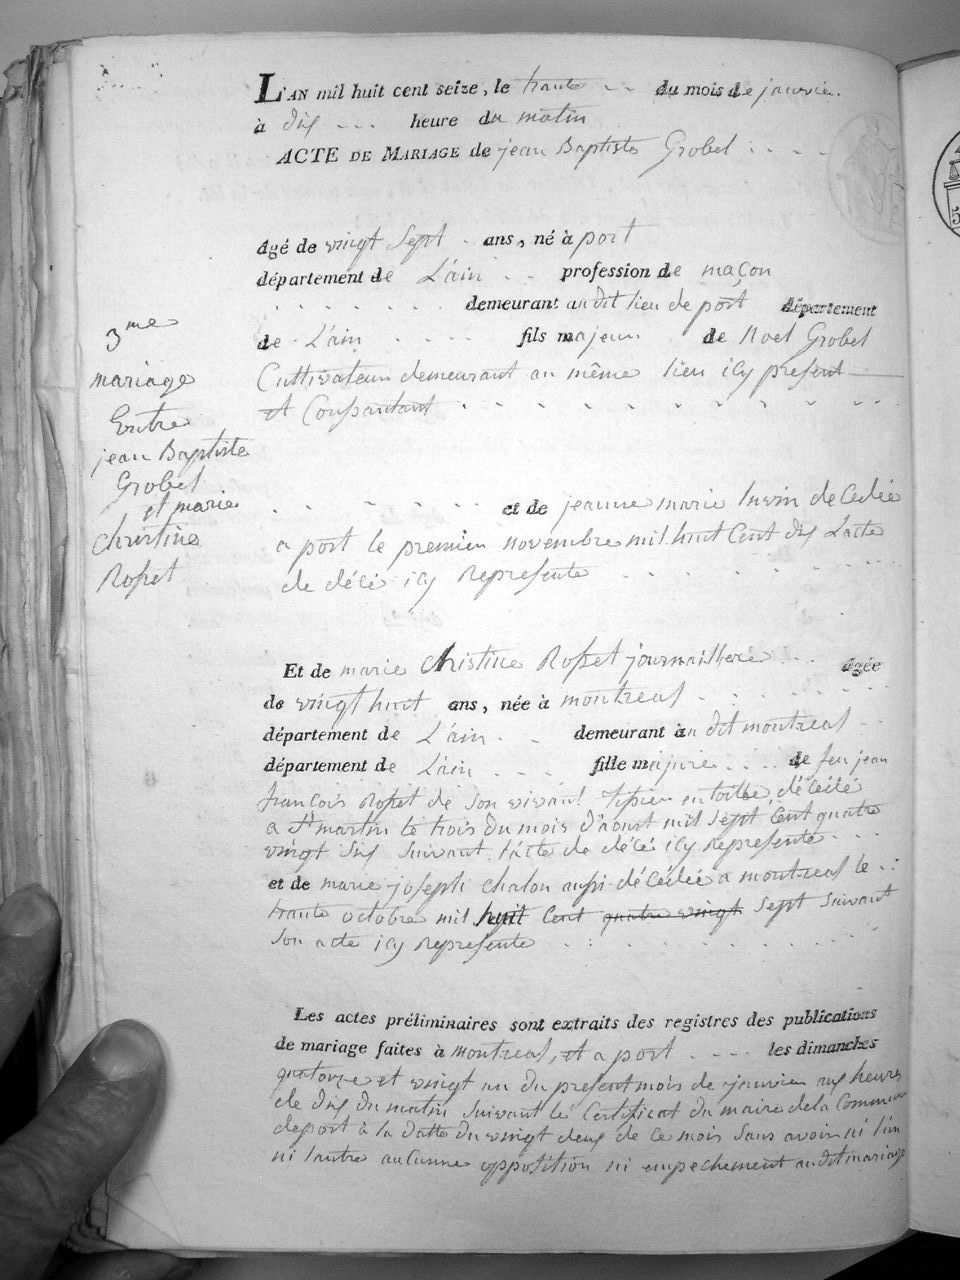 L'AN mil huit cent seize, le trante du mois de janvier.
à dix heure du matin
ACTE DE MARIAGE de jean Baptiste Grobel
agé de vingt Sept ans, né à port
département de L'ain profession de maçon
demeurant au dit lieu de port département
de L'ain fils majeur de Noel Grobel
Cultivateur demeurant au même lieu icy present
et Consantant
3me
mariage
Entre
jean Baptiste
Grobel
et marie
christine
Rosset
et de jeanne marie decedée
a port le premier novembre mil huit Cent dix L'acte
de décé icy Represente
Et de marie christine Rosset journailhere agée
de vingt huit ans, née à montreal
département de L'ain demeurant au dit montreal
département de L'ain fille majure de feu jean
francois Rosset de son vivant Tissier en toille décédé
a St martin le trois du mois d'aoust mil sept Cent quatre
vingt dix suivant l'acte de décé icy represente
et de marie joseph chalon aussi décédée a montreal le
trante octobre mil huit Cent quatre vingt sept suivant
son acte icy represente
Les actes préliminaires sont extraits des registres des publications
de mariage faites à montreal, et a port les dimanches
quatorze et vingt un du present mois de janvier aux heures
de dix du matin suivant le Certificat du maire de la Commune
de port à la datte du vingt deux de ce mois sans avoir ni l'un
ni l'autre aucunne opposition ni empechement au dit mariage
5